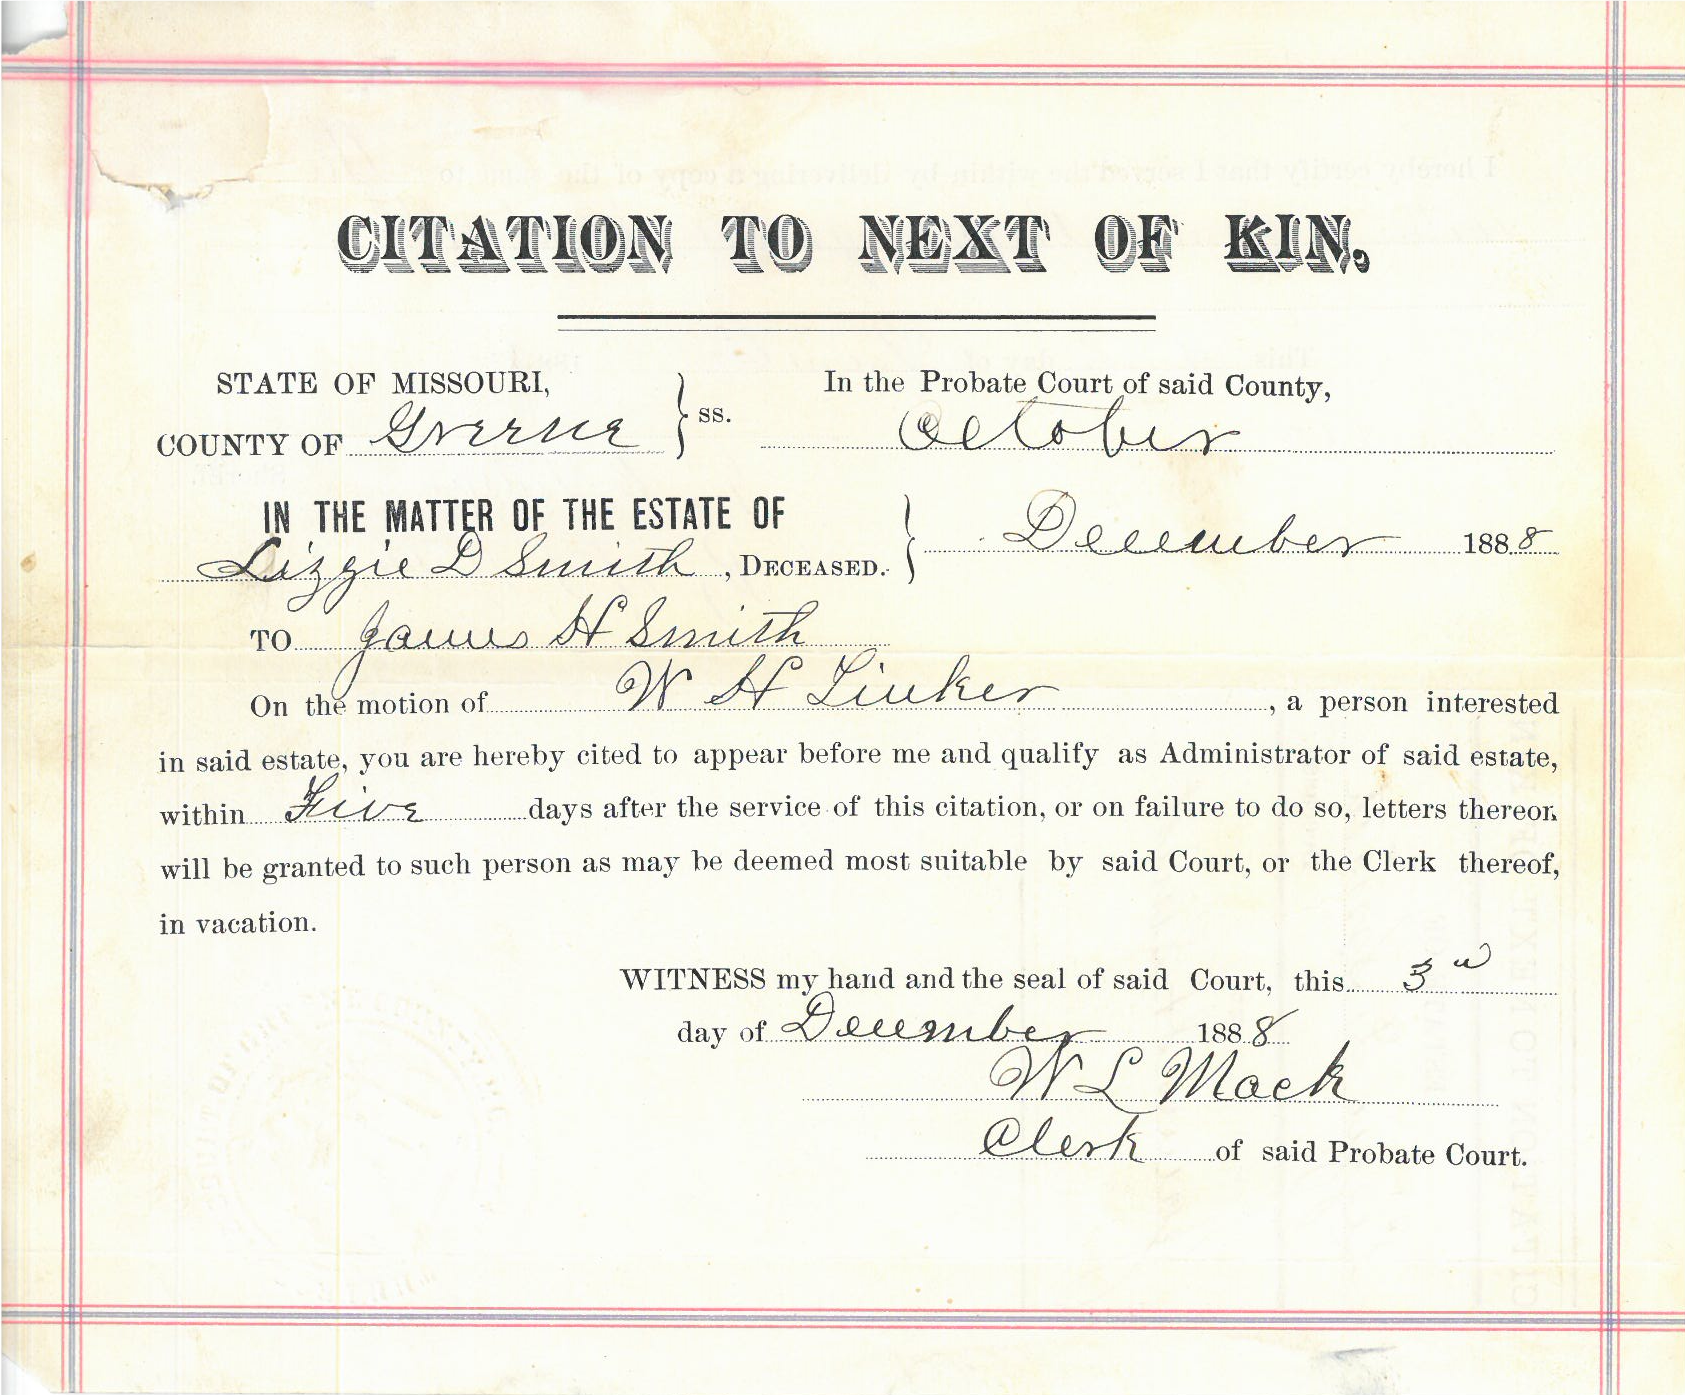 CITATION TO NEXT OF KIN.
STATE OF MISSOURI,
COUNTY OF Greene } ss.
In the Probate Court of said County,
October
IN THE MATTER OF THE ESTATE OF
Lizzie D Smith, DECEASED. }
December 1888
TO James H Smith
On the motion of W H Linker, a person interested
in said estate, you are hereby cited to appear before me and qualify as Administrator of said estate,
within Five days after the service of this citation, or on failure to do so, letters thereon
will be granted to such person as may be deemed most suitable by said Court, or the Clerk thereof,
in vacation.
WITNESS my hand and the seal of said Court, this 3
day of December 1888
W L Mack
Clerk of said Probate Court.